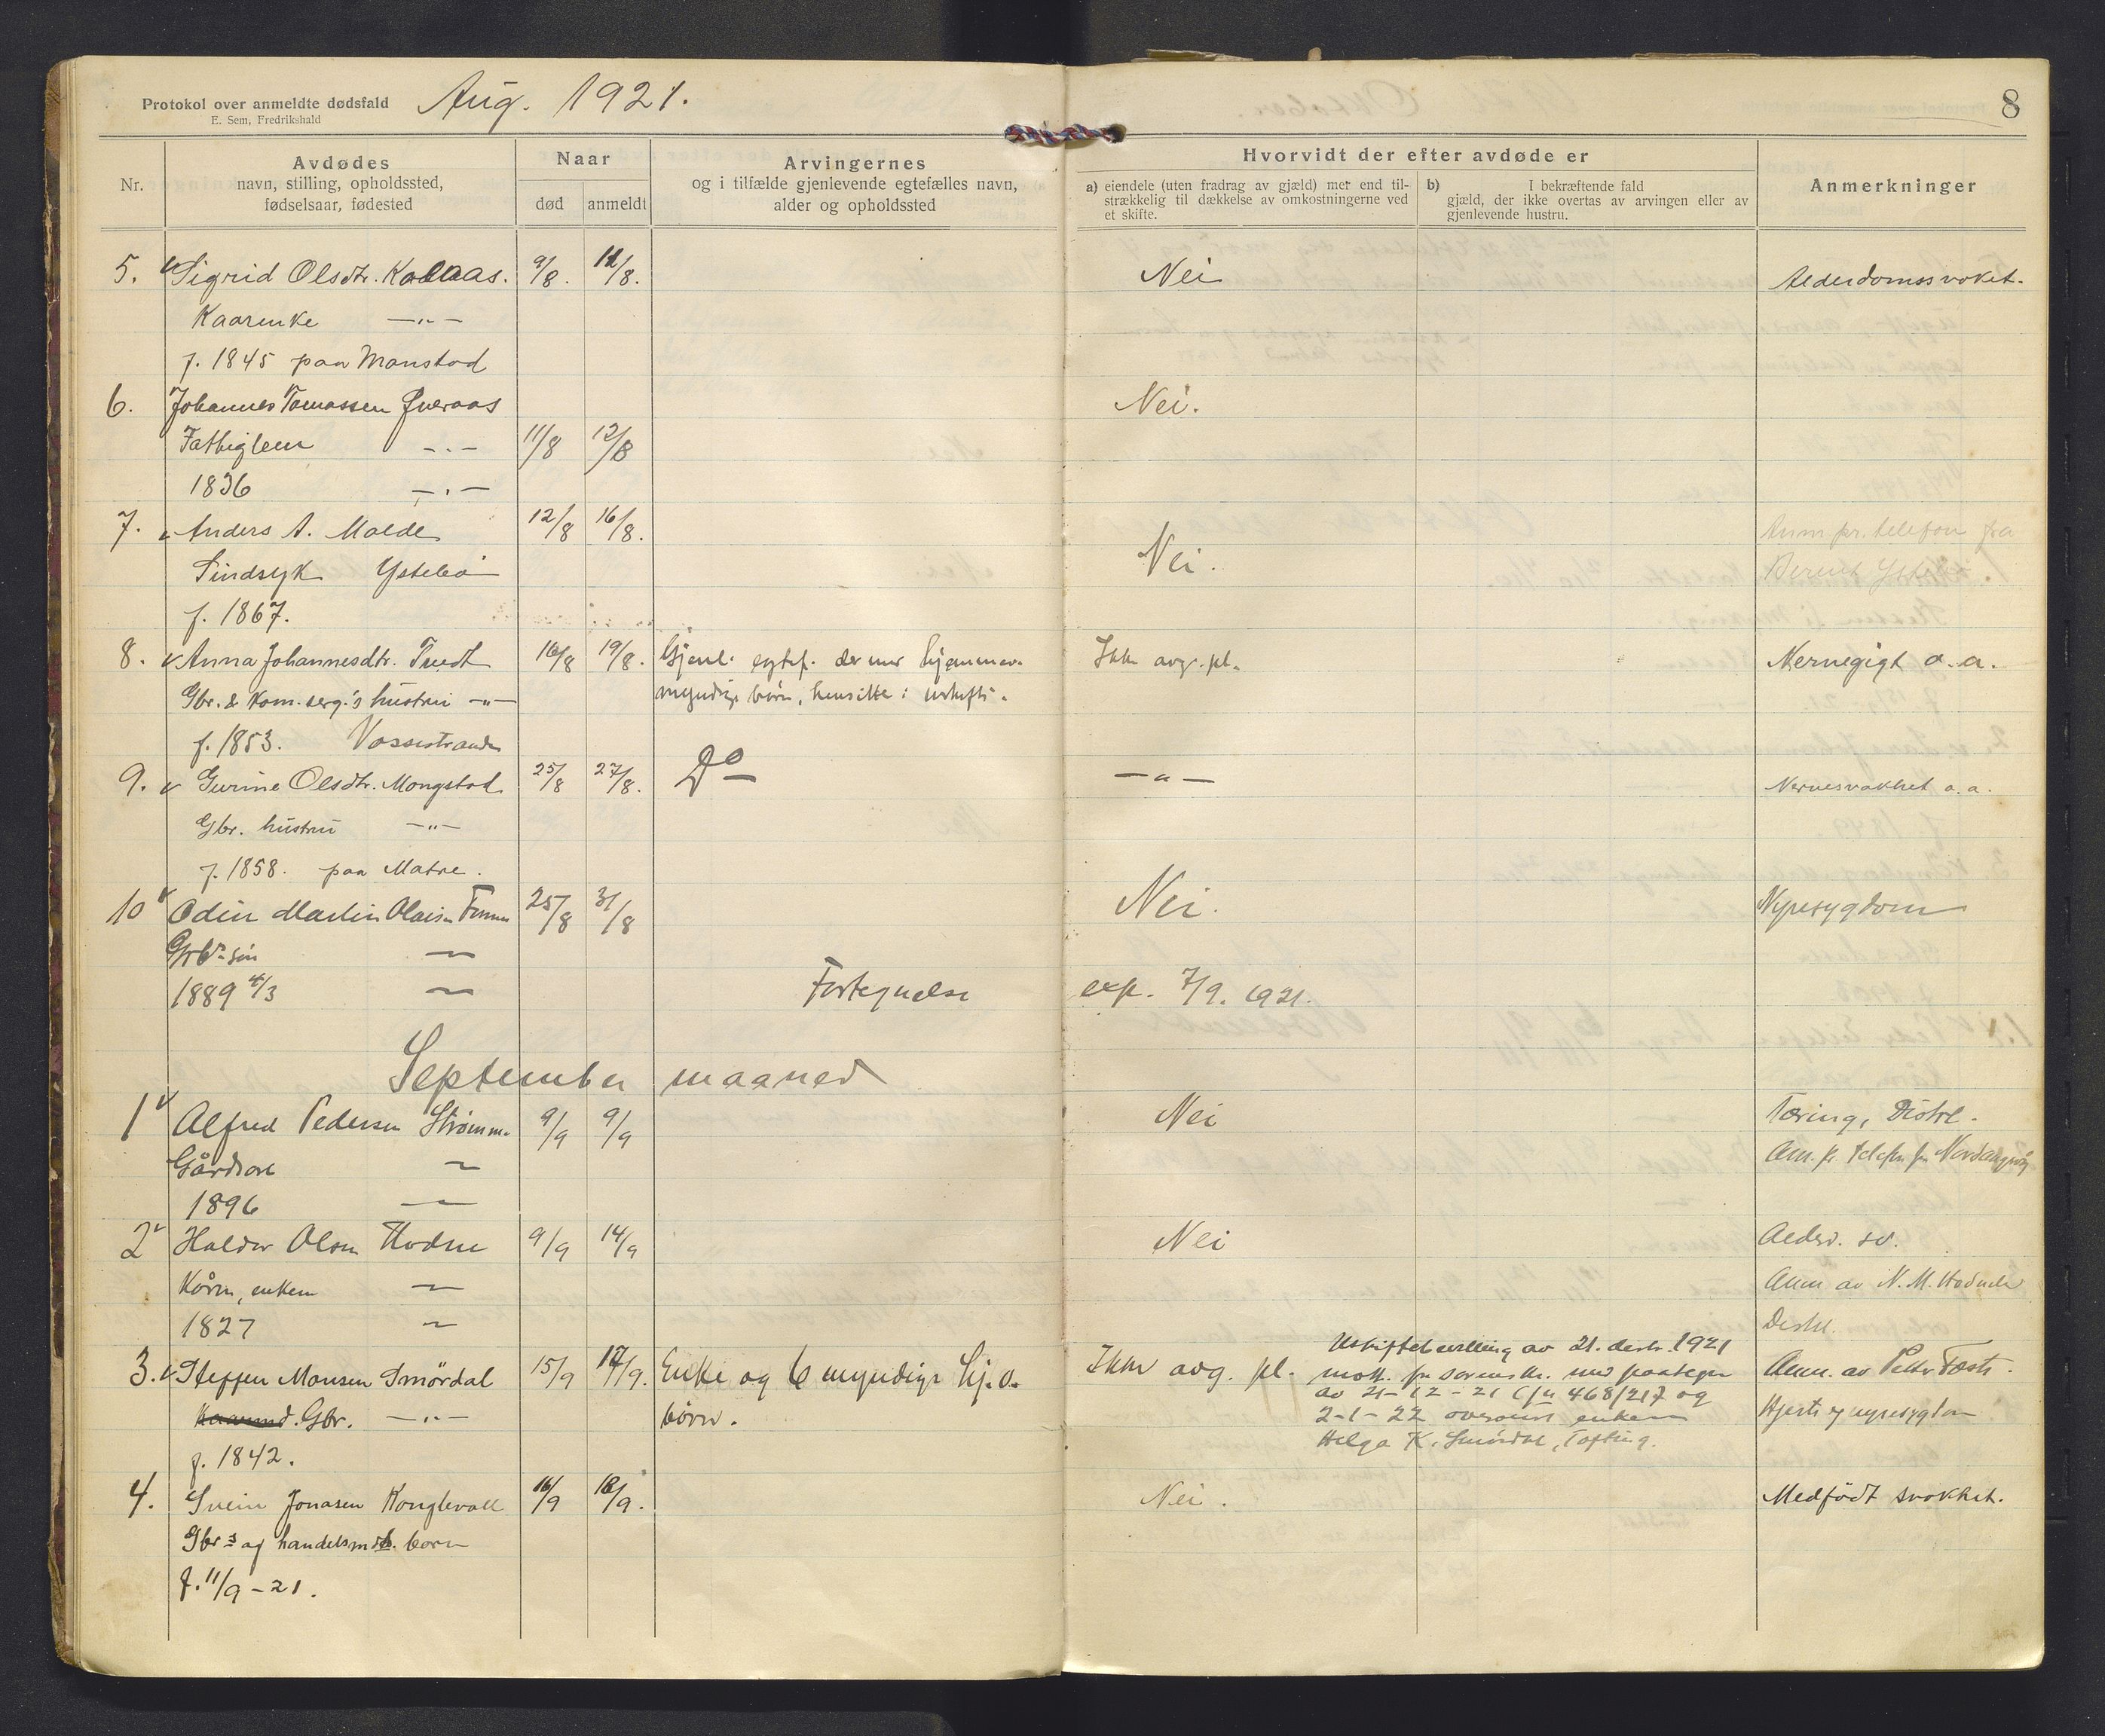 Protokol over anmeldte dødsfald
E. Sem, Fredrikshald
Aug. 1921.
8
Nr.
Avdødes
navn, stilling, opholdssted,
fødselsaar, fødested
Naar
død
anmeldt
Arvingernes
og i tilfælde gjenlevende egtefælles navn,
alder og opholdssted
Hvorvidt der efter avdøde er
a) eiendele (uten fradrag av gjæld) mer end til-
strækkelig til dækkelse av omkostningerne ved
et skifte.
b) I bekræftende fald
gjæld, der ikke overtas av arvingen eller av
gjenlevende hustru.
Anmerkninger
5. Sigrid Olsdtr. Kolaas. 9/8. 11/8. Nei Alderdomssvaket.
Kaarenke —"—
f. 1845 paa Monstad
6. Johannes Tomassen Nei.
Fattiglem —"— 11/8 12/8
1836 —"—
7. Anders A. Molde 12/8 16/8. Nei. Anm pr. telefon fra
Sindsyk Ystebø Berent Ystebø
f. 1867.
8. Anna Johannesdtr. 16/8 19/8. Gjenl. egtef. Ikke avg. pl. Nervegigt o. a.
Gbr. & Kom. serg.'s hustru —"— myndige børn, hensitter i uskifte.
f. 1853. Vossestranden
9. Gurine Olsdtr. Mongstad 25/8 27/8. Do —"— Nervesvakhet o. a.
Gbr. hustru —"—
f. 1858. paa Matre.
10 Odin Martin Olaisen 25/8 31/8 Nei. Nyresygdom
Gbrs søn —
1889 4/3 — Fortegnelse exp. 7/9. 1921.
September maaned
1 Alfred Pedersen Strømm. 9/9 9/9 Nei Tæring, Distrl.
— Anm. pr. telefon fra
1896 —
2 Haldor Olsen Hodne 9/9 14/9 Nei Alderd. sv.
Kårm, enkem — Anm av N. M. Hodneh
1827 — Distrl.
3. Steffen Monsen Smørdal 15/9 17/9. Enke og 6 myndige hj. o. Ikke avg. pl. Uskiftebevilling av 21. desbr. 1921 Anm. av Petter
Kaarmd. Gbr. —"— børn. mott. fra sorenskr. med paategn
av 21-12-21 (jn 468/217 og Hjerte og nyresygdom
f. 1842. 2-1-22 oversendt enken
Helga K. Smørdal,
4. Svein Jonasen Konglevoll 16/9 18/9. Nei. Medfødt svakhet.
Gbr s og handelsmds. barn
f. 11/9-21.